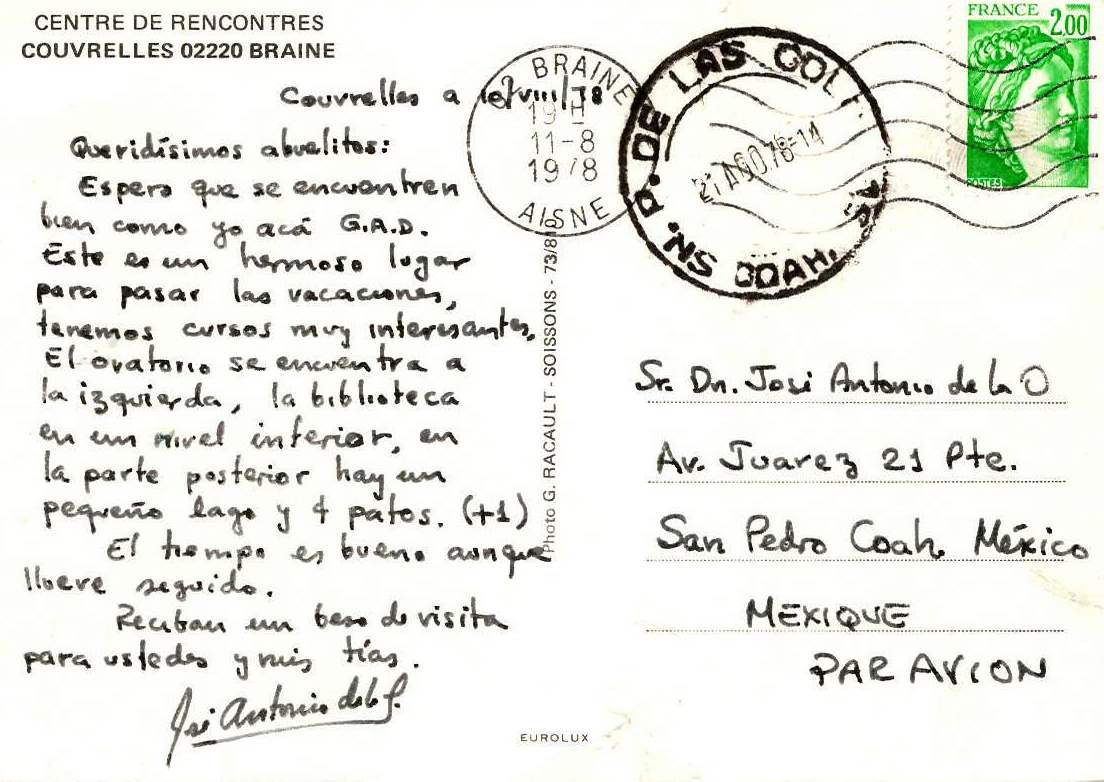 CENTRE DE RENCONTRES
COUVRELLES 02220 BRAINE
Couvrelles a 10/VIII/78
Queridísimos abuelitos:
Espero que se encuentren
bien como yo acá G.A.D.
Este es un hermoso lugar
para pasar las vacaciones,
tenemos cursos muy interesantes.
El oratorio se encuentra a
la izquierda, la biblioteca
en un nivel inferior, en
la parte posterior hay un
pequeño lago y 4 patos. (+1)
El tiempo es bueno aunque
llueve seguido.
Reciban un beso de visita
para ustedes y mis tías.
José Antonio de la
Photo G. RACAULT - SOISSONS - 73/81
EUROLUX
02 BRAINE
19H
11-8
1978
AISNE
SN. P. DE LAS COL
COAH.
AGO 78-14
FRANCE
2,00
POSTES
Sr. Dn. José Antonio de la O
Av. Juarez 21 Pte.
San Pedro Coah. México
MEXIQUE
PAR AVION